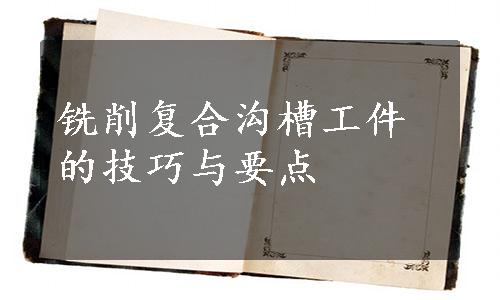 铣削复合沟槽工件
的技巧与要点